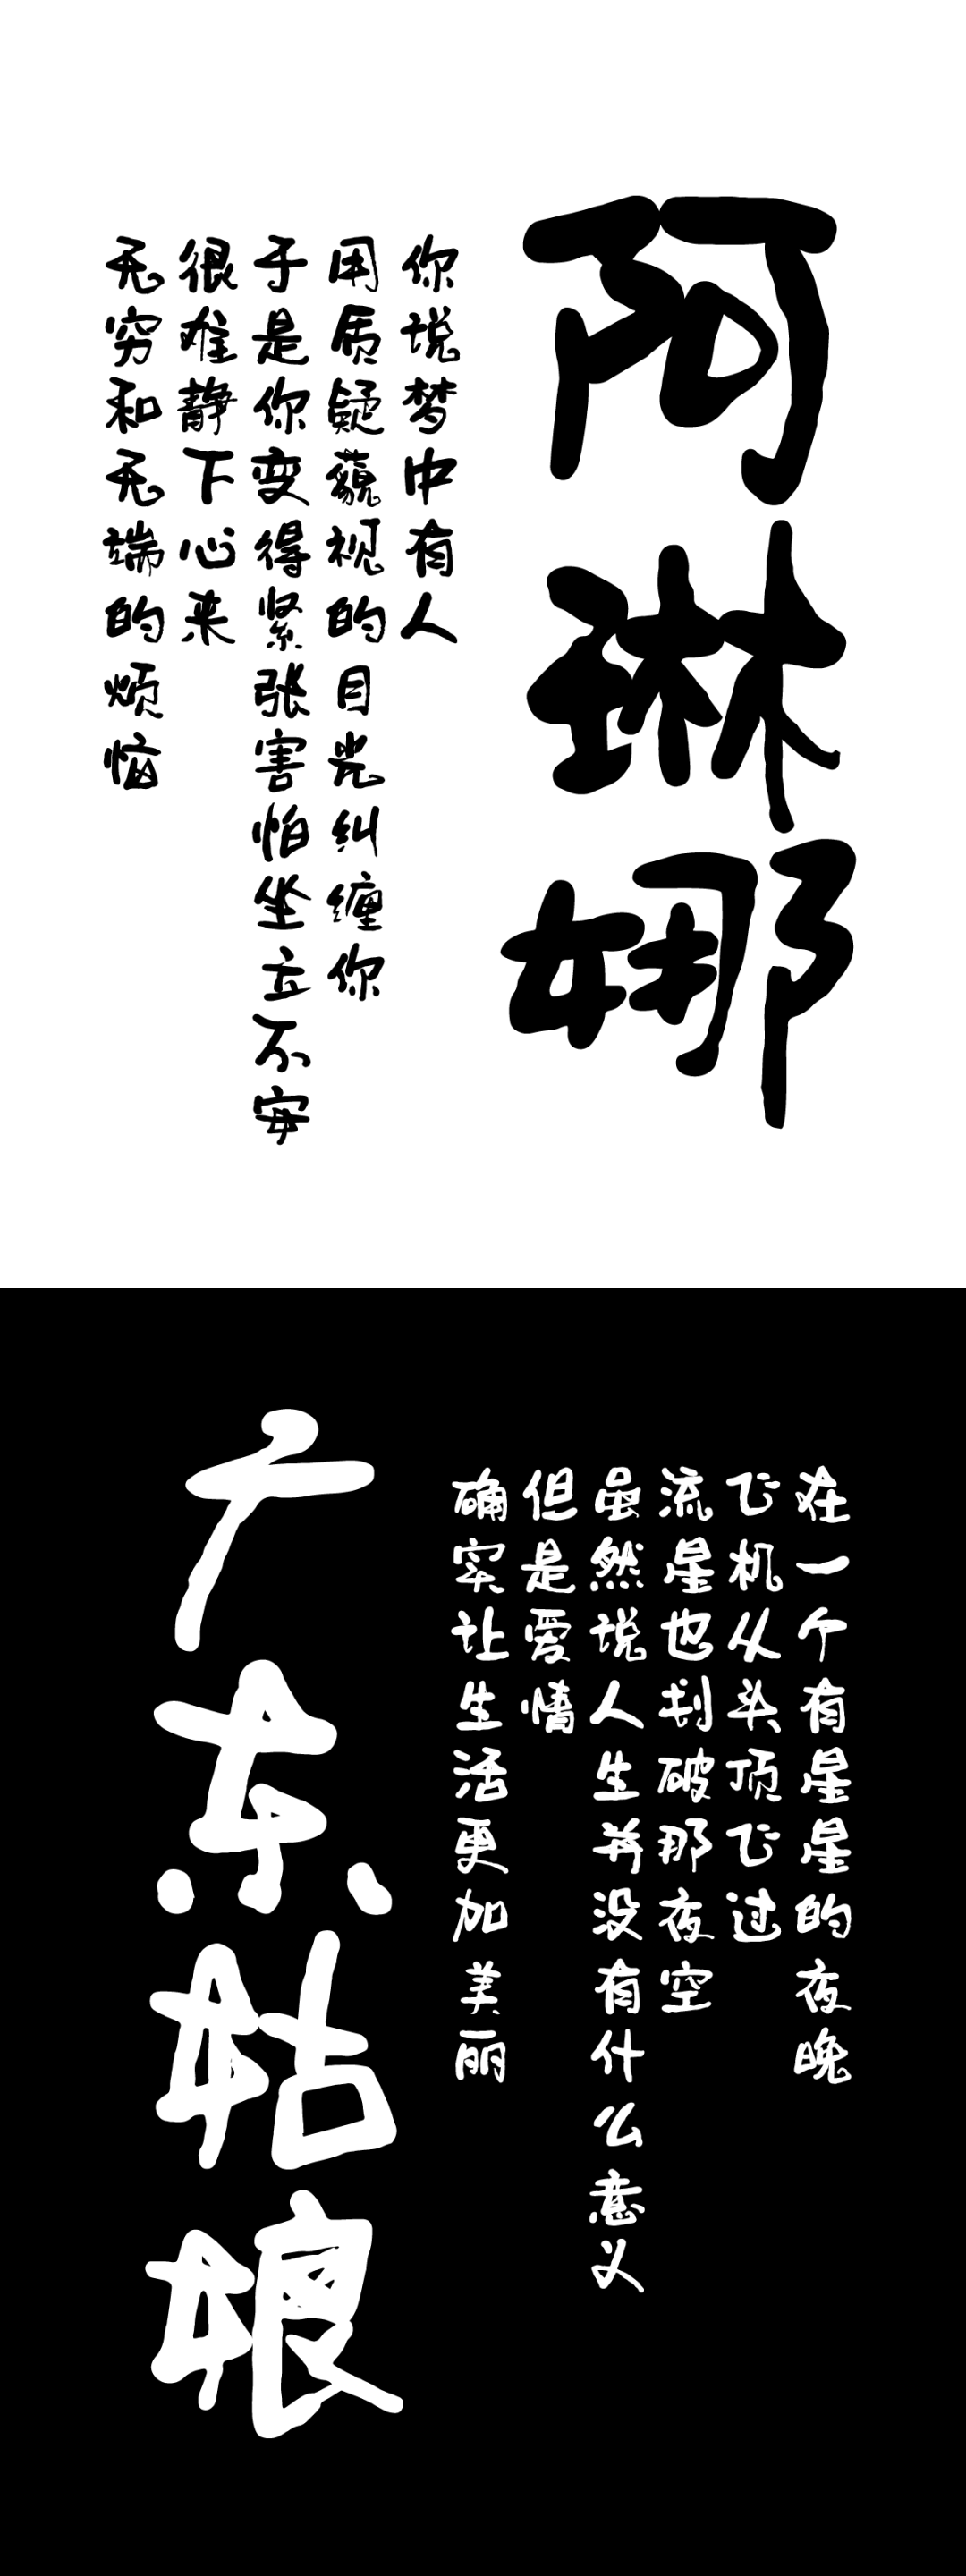 阿琳娜
你说梦中有人
用质疑藐视的目光纠缠你
于是你变得紧张害怕坐立不安
很难静下心来
无穷和无端的烦恼
在一个有星星的夜晚
飞机从头顶飞过
流星也划破那夜空
虽然说人生并没有什么意义
但是爱情
确实让生活更加美丽
广东姑娘